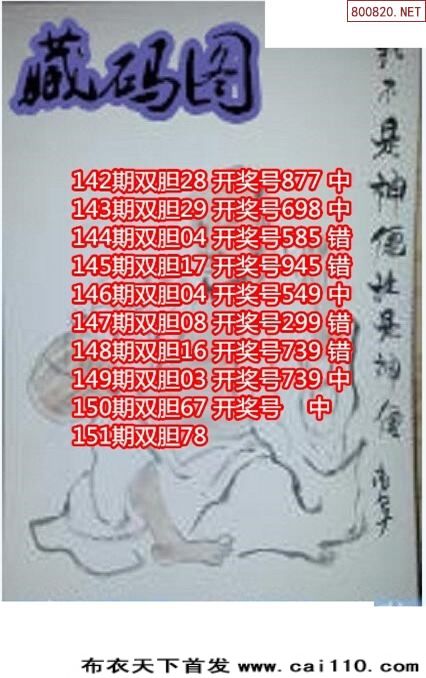 800820.NET
藏码图
142期双胆28 开奖号877 中
143期双胆29 开奖号698 中
144期双胆04 开奖号585 错
145期双胆17 开奖号945 错
146期双胆04 开奖号549 中
147期双胆08 开奖号299 错
148期双胆16 开奖号739 错
149期双胆03 开奖号739 中
150期双胆67 开奖号 中
151期双胆78
我不是神便是神仙
布衣天下首发 www.cai110.com